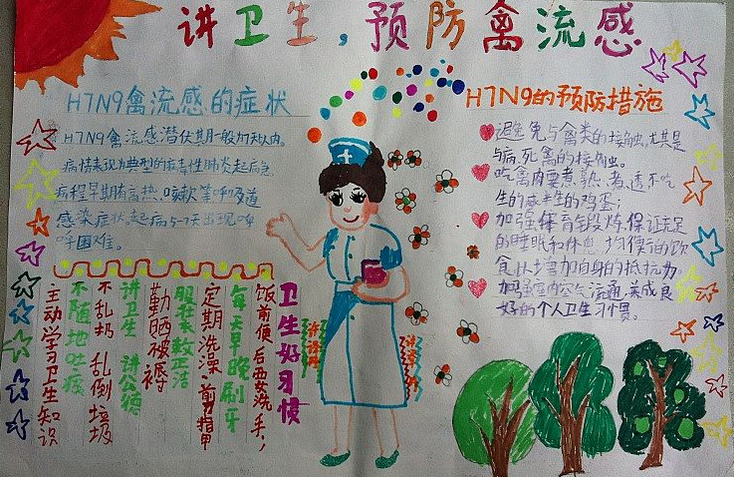 讲卫生,预防禽流感
H7N9禽流感的症状
H7N9禽流感潜伏期一般为7天以内。
病情表现为典型的病毒性肺炎起病急
病程早期有高热、咳嗽等呼吸道
感染症状,起病5-7天出现呼
呼困难。
H7N9的预防措施
避免与禽类的接触,尤其是
与病、死禽的接触。
吃禽肉要煮熟、煮透不吃
生的或半生的鸡蛋;
加强体育锻炼,保证充足
的睡眠和休息,均衡的饮
食从增加自身的抵抗力
加强室内空气流通,养成良
好的个人卫生习惯。
卫生好习惯
饭前便后要洗手,
每天早晚刷牙
定期洗澡 剪指甲
服装衣整洁
勤晒被褥
讲卫生 讲公德
不乱扔 乱倒垃圾
不随地吐痰
主动学习卫生知识